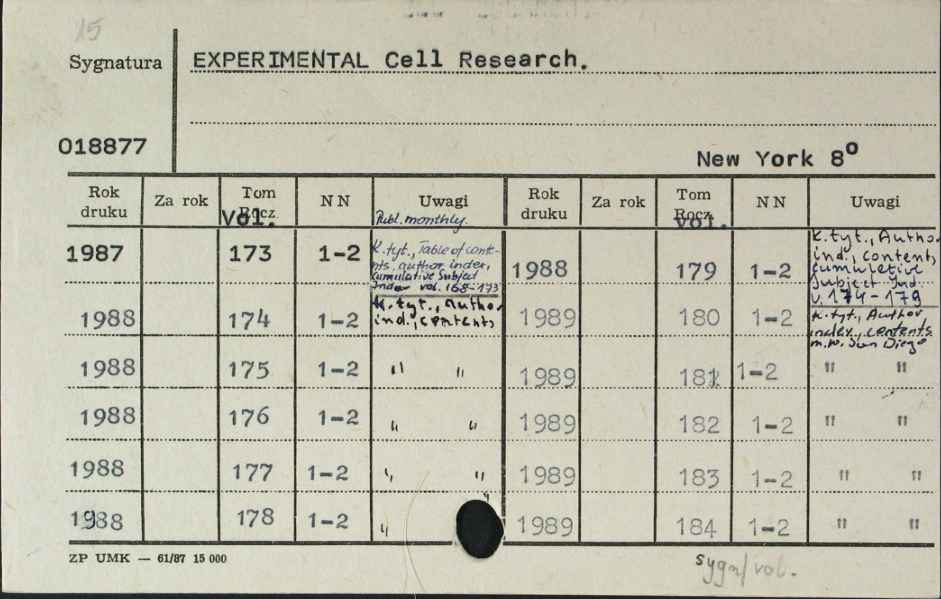 15
Sygnatura EXPERIMENTAL Cell Research.
018877
New York 8°
Rok druku Za rok Tom Rocz. Vol. NN Uwagi Publ. monthly. Rok druku Za rok Tom Rocz. Vol. NN Uwagi
1987 173 1-2 K.tyt., Table of conte-
nts, author index,
cumulative Subject
Index vol. 168-173
1988 179 1-2 K.tyt., Autho.
ind., contents
cumuletive
Subject Ind.
v. 174-179
1988 174 1-2 K.tyt., Author
ind., contents
1989 180 1-2 K.tyt., Author
index, contents
m.w. San Diego
1988 175 1-2 " " 1989 181 1-2 " "
1988 176 1-2 " " 1989 182 1-2 " "
1988 177 1-2 " " 1989 183 1-2 " "
1988 178 1-2 " " 1989 184 1-2 " "
ZP UMK — 61/87 15 000
sygn/vol.